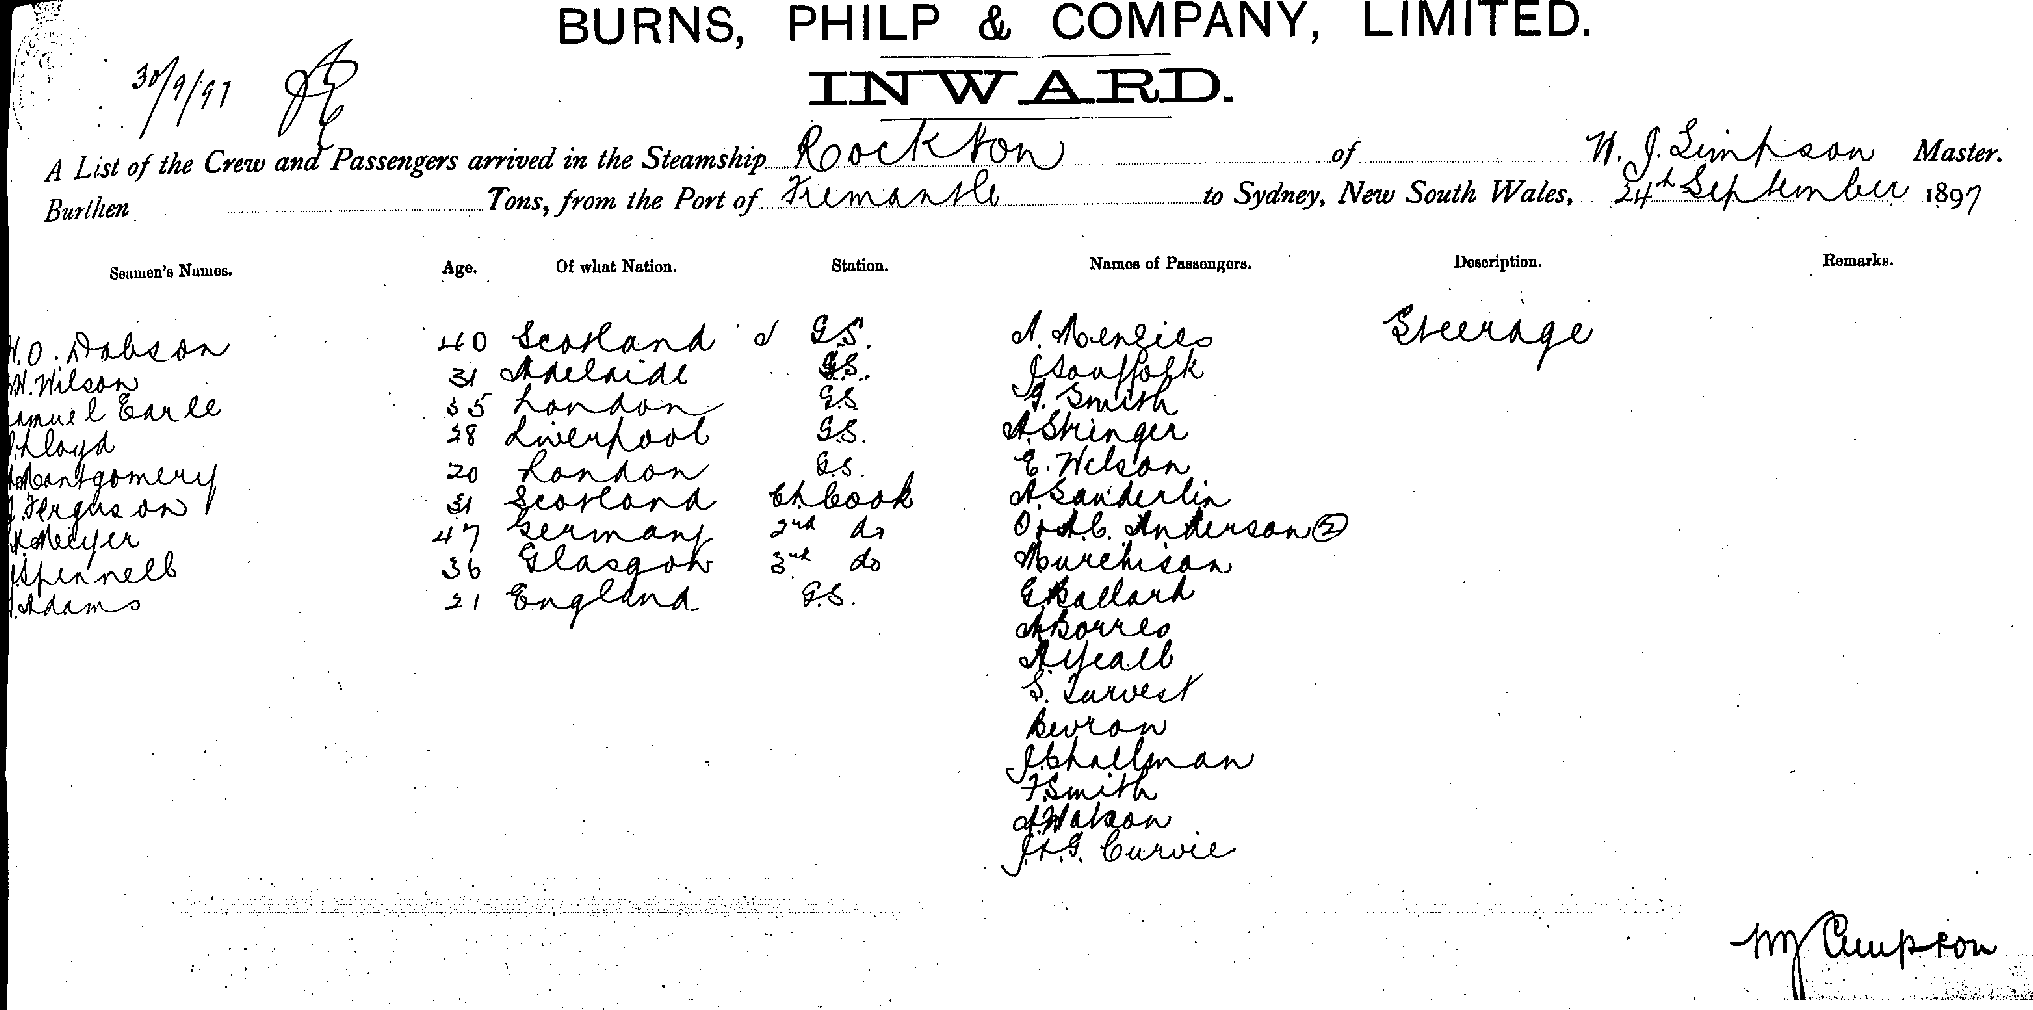 BURNS, PHILP & COMPANY, LIMITED.
30/9/97
INWARD.
A List of the Crew and Passengers arrived in the Steamship Rockton of W. J. Simpson Master.
Burthen Tons, from the Port of Fremantle to Sydney, New South Wales, 24th September 1897
Seamen's Names. Age. Of what Nation. Station. Names of Passengers. Description. Remarks.
O. Dobson 40 Scotland G.S. A. Menzies Steerage
W. Wilson 31 Adelaide G.S. J Souffolk
amuel Earle 35 London G.S G. Smith
Lloyd 28 Liverpool G.S. A Stringer
Montgomery 20 London G.S. E. Wilson
Ferguson 31 Scotland Ch. Cook A Sanderlin
Meyer 47 Germany 2nd do O & A C. Anderson (2)
Spinnell 36 Glasgow 3rd do Murchison
Adams 21 England G.S. E Ballard
A Borres
A. Yeall
S. Turvest
Bevron
J. Challman
F. Smith
A. Watson
J. & G. Curvie
W J Simpson